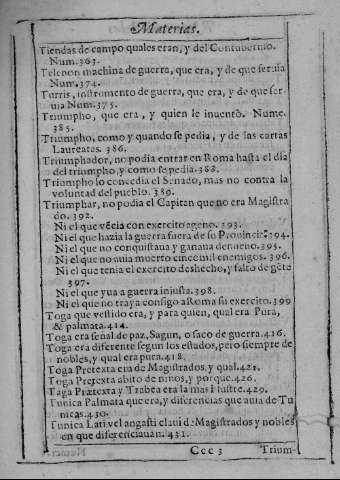 Materias.
Tiendas de campo quales eran, y del Contubernio.
Num.363.
Telenon machina de guerra, que era, y de que seruia
Num.374.
Turris, instrumento de guerra, que era, y de que ser-
uia Num.375.
Triumpho, que era, y quien le inuentò. Nume.
385.
Triumpho, como y quando se pedia, y de las cartas
Laureatas. 386.
Triumphador, no podia entrar en Roma hasta el dia
del triumpho, y como se pedia.388.
Triumpho lo concedia el Senado, mas no contra la
voluntad del pueblo. 389.
Triumphar, no podia el Capitan que no era Magistra
do. 392.
Ni el que vẽcia con exercito ageno. 393.
Ni el que hazia la guerra fuera de su Prouincia.394.
Ni el que no conquistaua y ganaua denueuo.395.
Ni el que no auia muerto cinco mil enemigos. 396.
Ni el que tenia el exercito deshecho, y falto de gẽte
397.
Ni el que yua a guerra injusta.398.
Ni el que no traya consigo a Roma su exercito.399
Toga que vestido era, y para quien, qual era Pura,
& palmata.414.
Toga era señal de paz, Sagun, o saco de guerra.416.
Toga era diferente segun los estados, pero siempre de
nobles, y qual era pura.418.
Toga Pretexta era de Magistrados, y qual.421.
Toga Pretexta abito de niños, y porque.426.
Taga Pretexta y Trabea era la mas ilustre.429.
Tunica Palmata que era, y diferencias que auia de Tu
nicas.430.
Tunica Lati vel angusti claui de Magistrados y nobles
en que diferenciauan. 431.
Ccc 3 Trium-